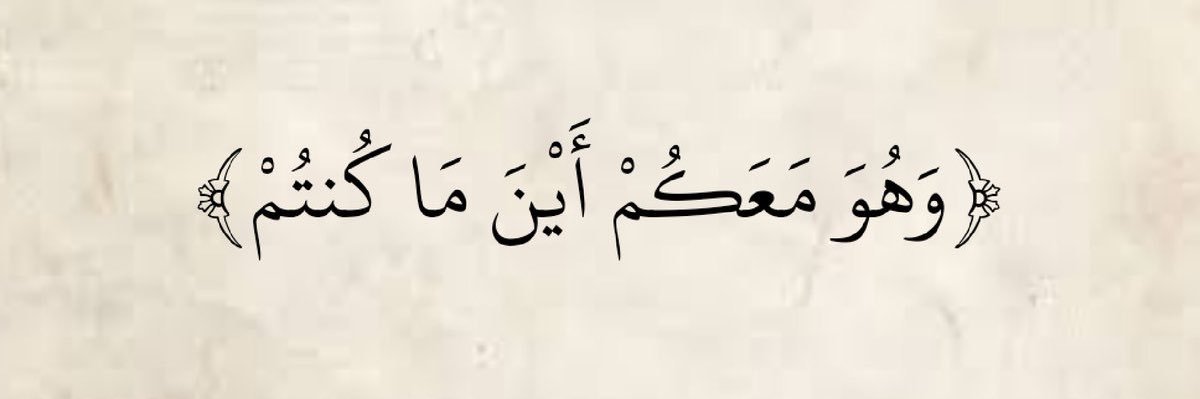 ﴿وَهُوَ مَعَكُمْ أَيْنَ مَا كُنتُمْ﴾